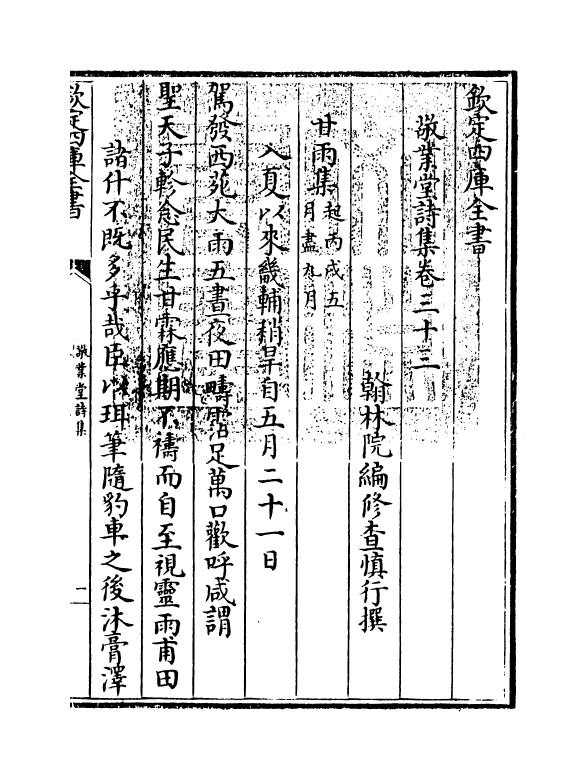 欽定四庫全書
敬業堂詩集卷三十三
翰林院編修查慎行撰
甘雨集起丙戌五
月盡九月
入夏以來畿輔稍旱自五月二十一日
駕發西苑大雨五晝夜田疇霑足萬口歡呼咸謂
聖天子軫念民生甘霖應期不禱而自至視靈雨甫田
諸什不既多乎哉臣以珥筆隨豹車之後沐膏澤
欽定四庫全書
敬業堂詩集